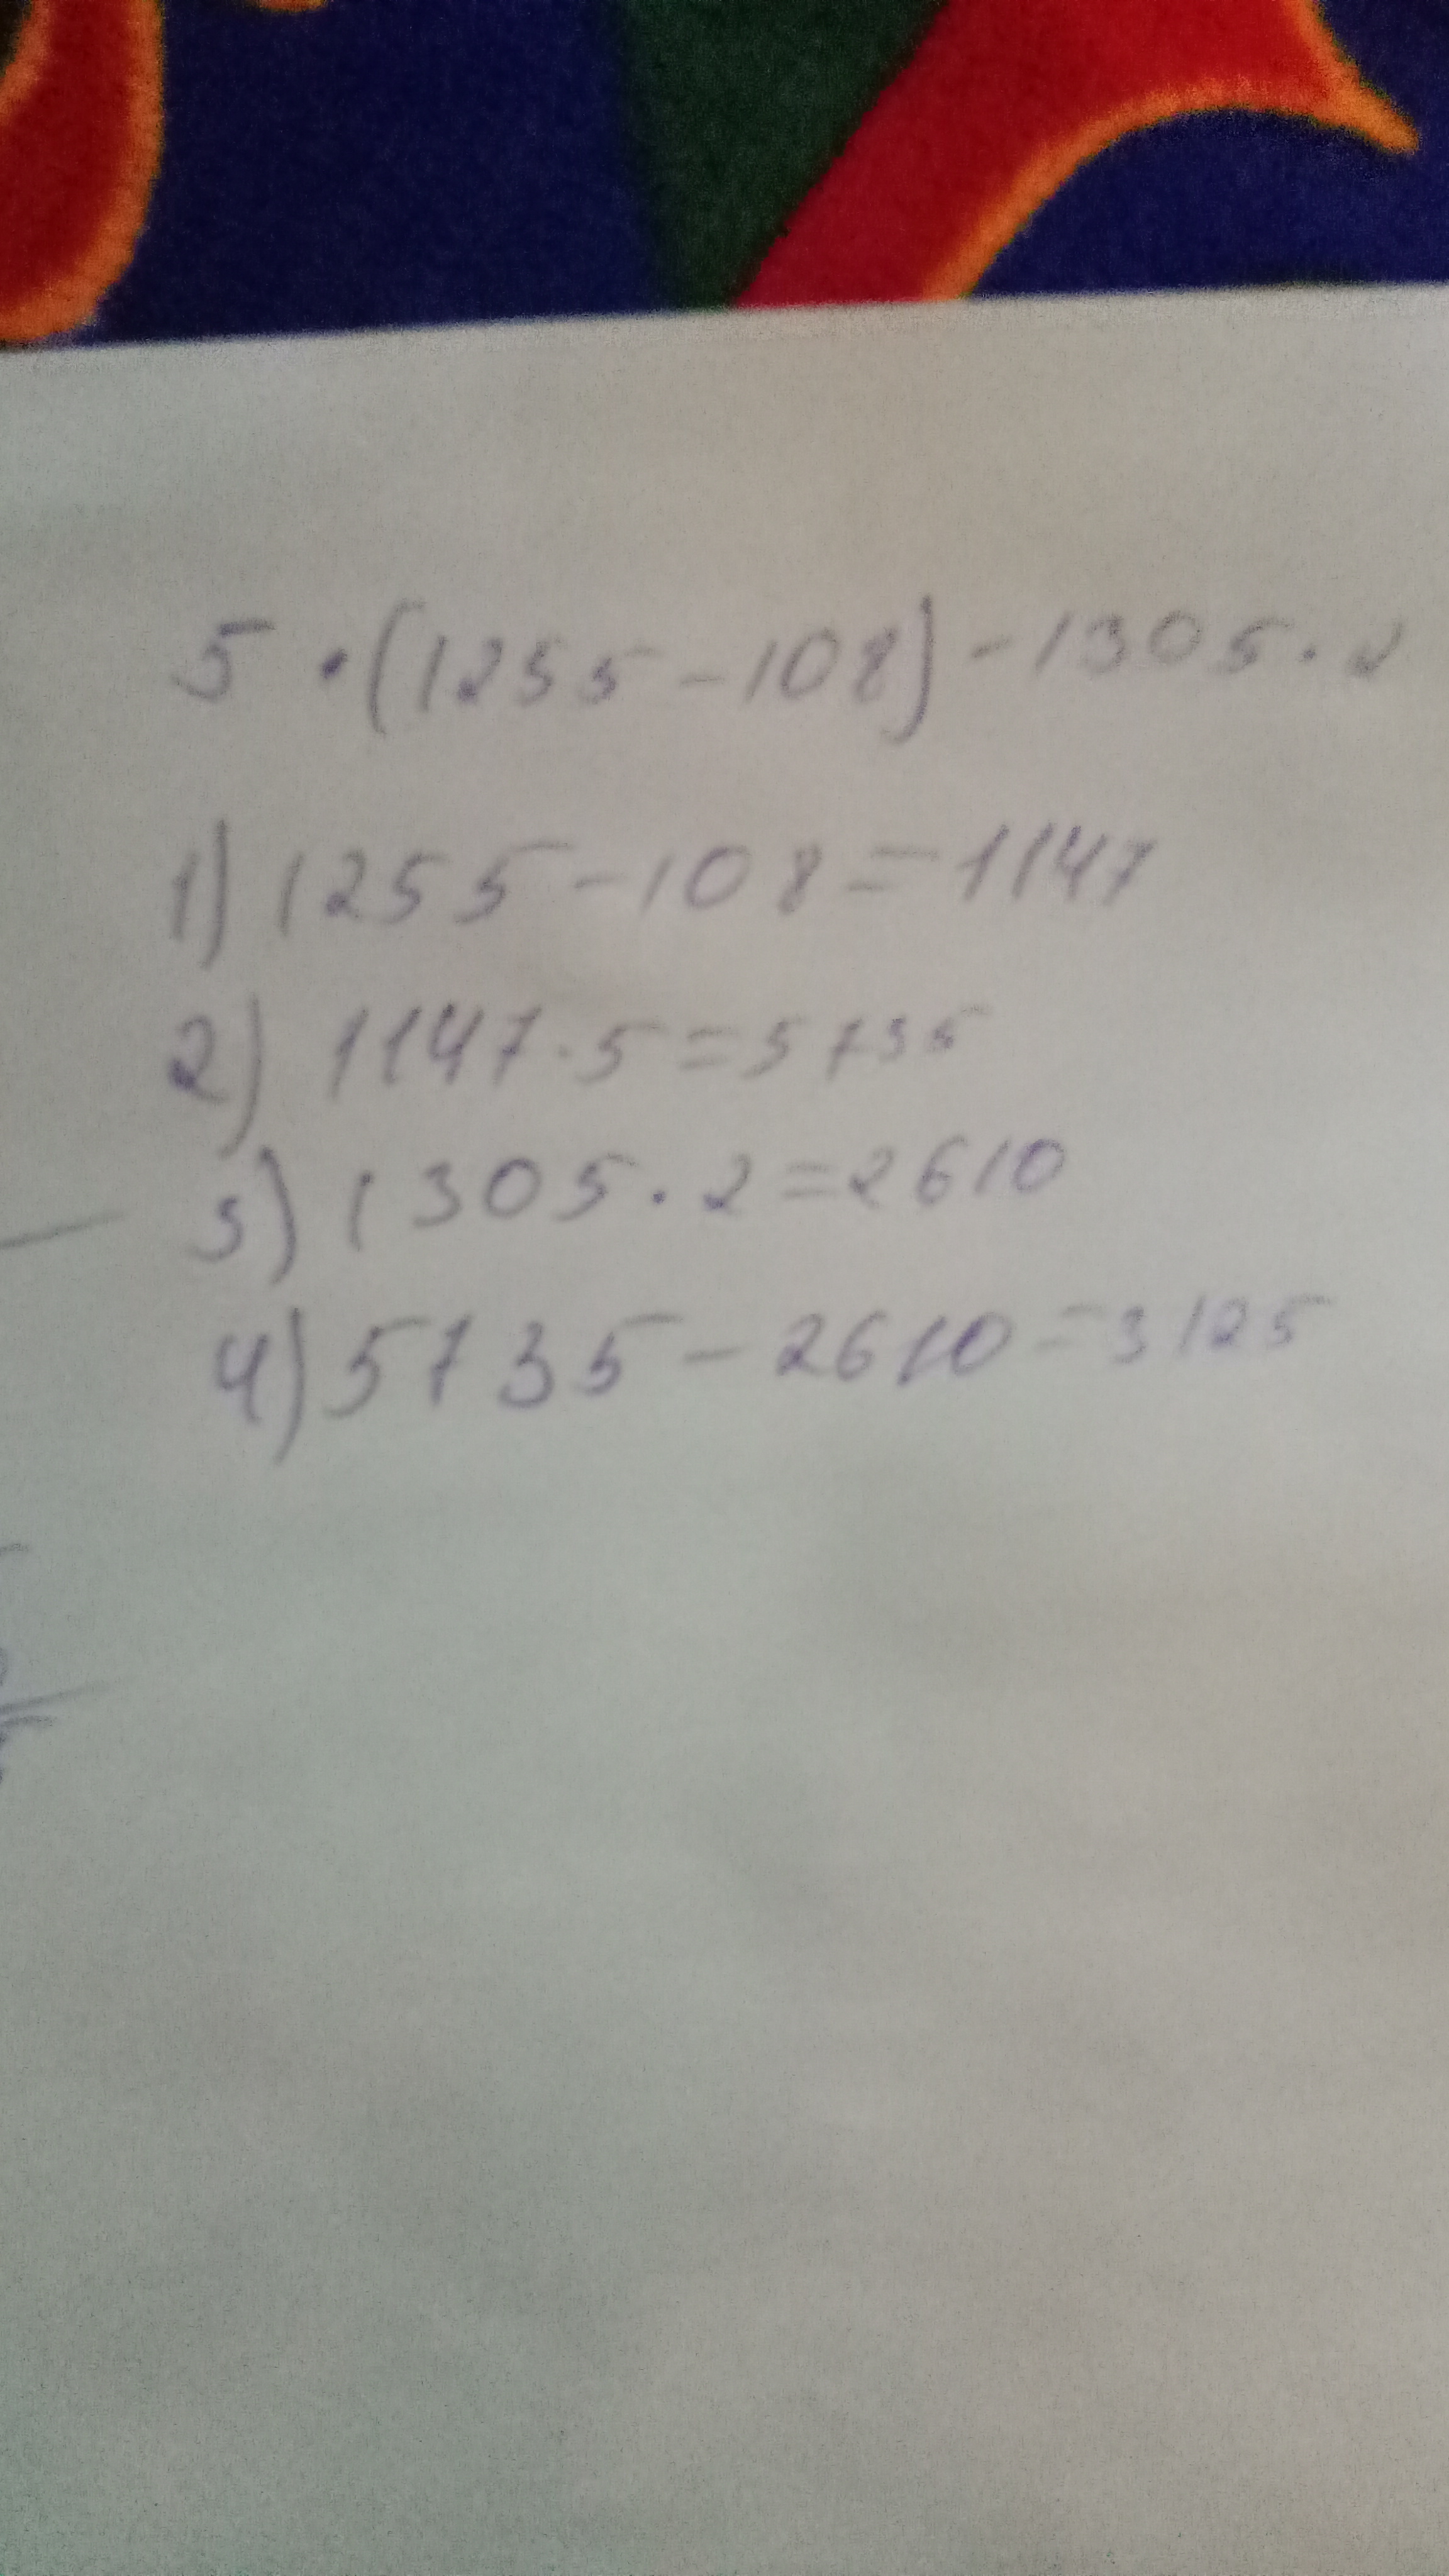 5 · (1255 - 108) - 1305 · 2
1) 1255 - 108 = 1147
2) 1147 · 5 = 5735
3) 1305 · 2 = 2610
4) 5735 - 2610 = 3125